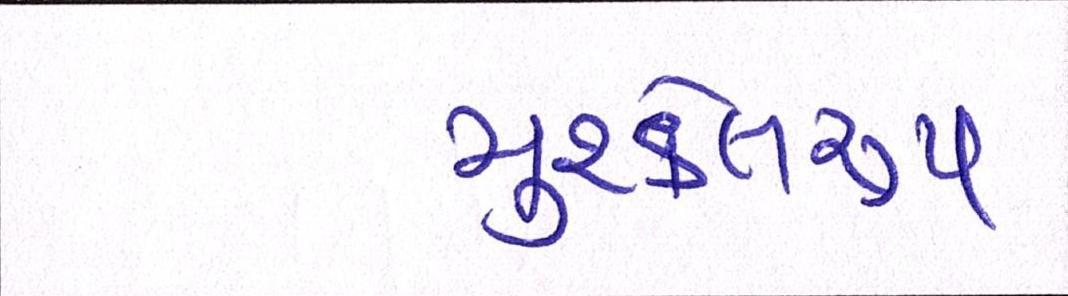 મુશ્કેલરુપ